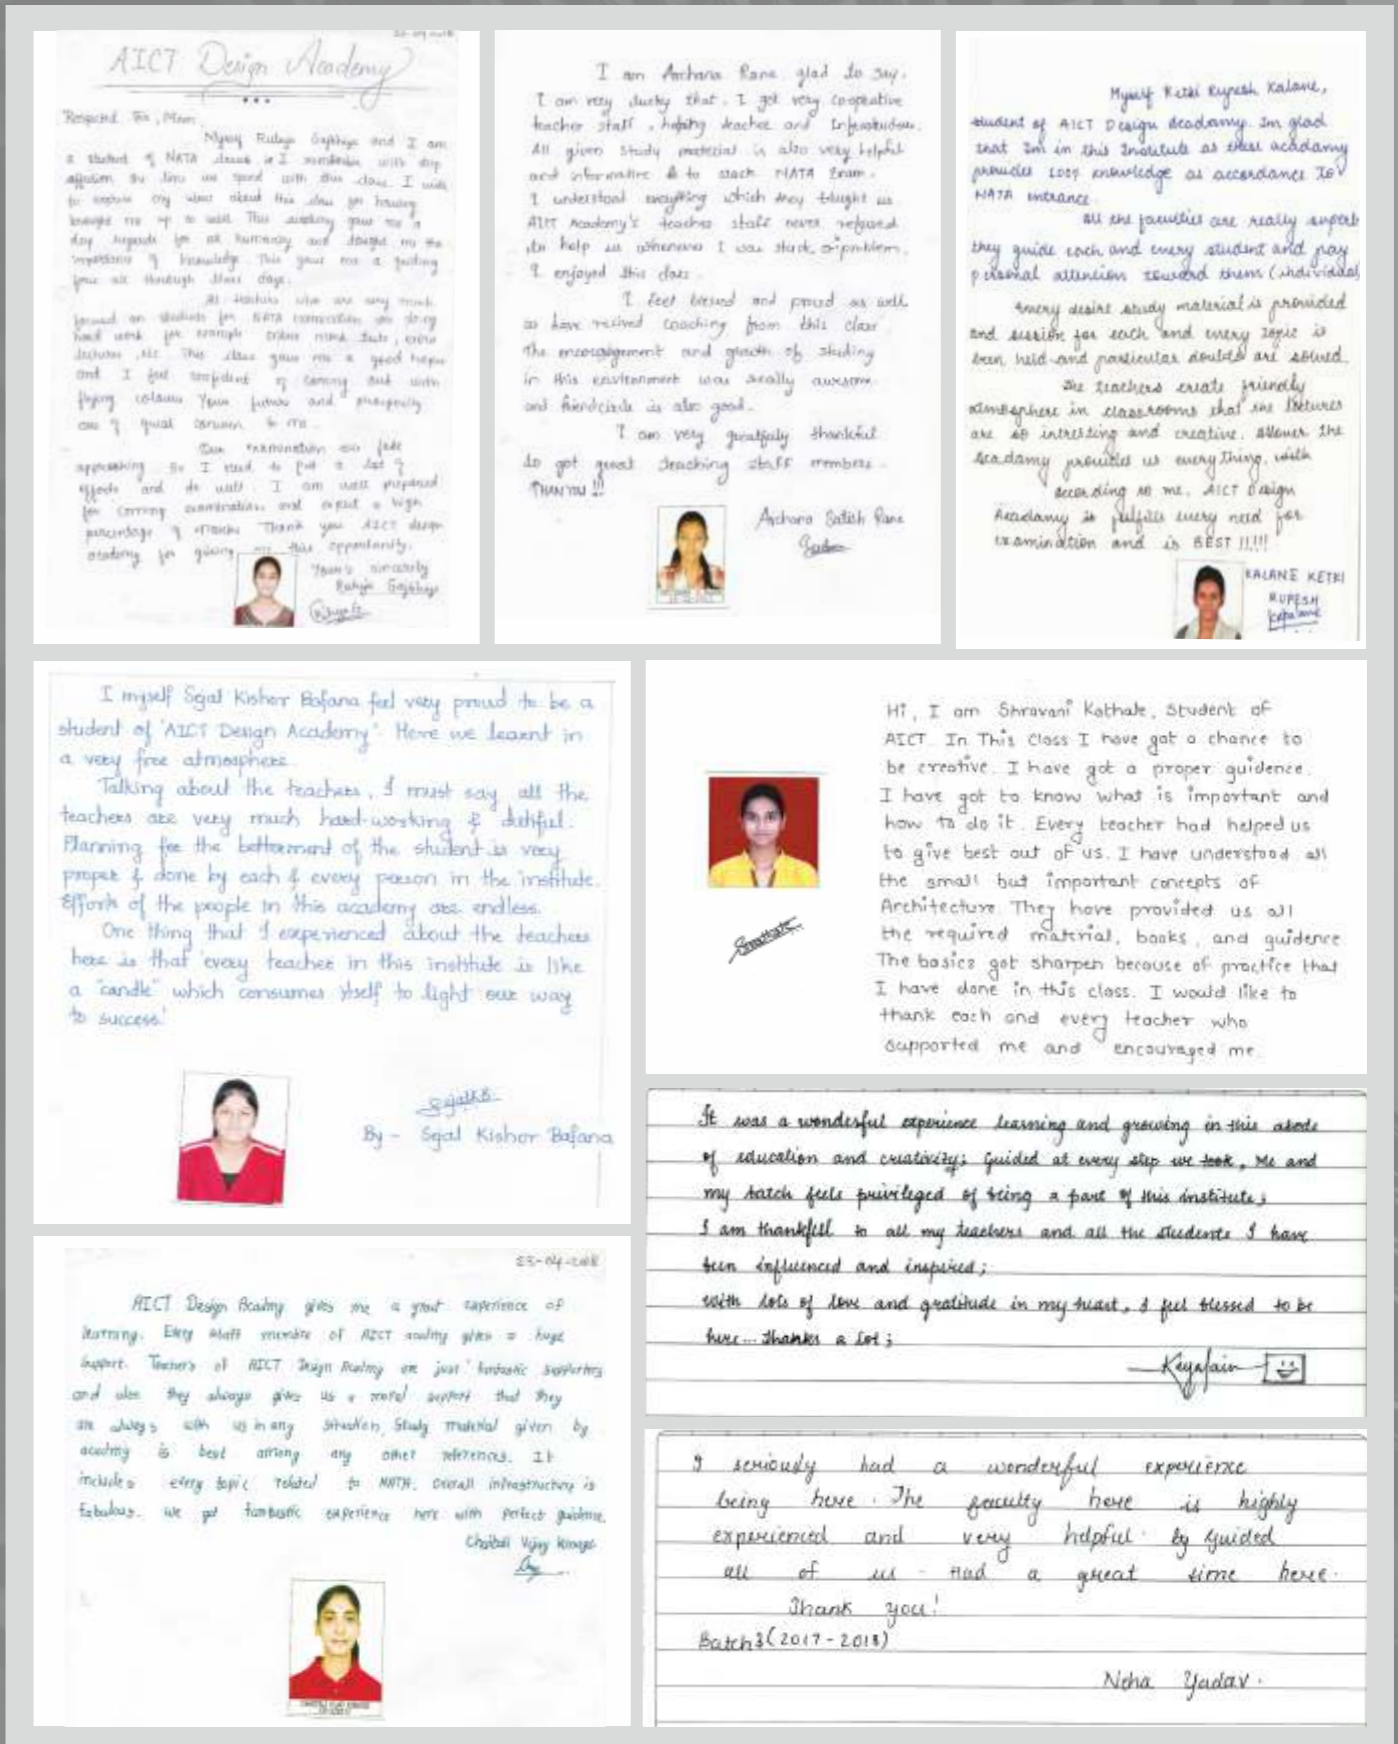 23-04-2018
AICT Design Academy
Respected Sir, Mam,
Myself Rutuja Gajbhiye and I am
a student of NATA class. I remember with deep
affection the time we spend with this class. I wish
to express my views about this class for having
brought me up so well. This academy gave me a
day regards for all humanity and taught me the
importance of knowledge. This gave me a guiding
force all through these days.
All teachers who are very much
focused on students for NATA examination
hard work for example online mock tests, extra
lectures, etc. This class gave me a good hope
and I feel confident of coming out with
flying colours. Your future and prosperity
are of great concern to me.
Our examination are fast
approaching. So I need to put a lot of
efforts and do well. I am well prepared
for coming examination and expect a high
percentage of marks. Thank you AICT design
academy for giving me this opportunity.
Your's sincerely
Rutuja Gajbhiye
I am Archana Rane glad to say.
I am very lucky that. I got very cooperative
teacher staff, helping teacher and Infrastructure.
All given study material is also very helpful
and informative & to stack NATA Exam.
I understand everything which they taught us
AICT Academy's teaches staff never refused
to help us whenever I was stuck or problem.
I enjoyed this class.
I feel blessed and proud as well
as have recived coaching from this class
The encouragement and growth of studing
in this environment was really awsom
and friendcircle is also good.
I am very greatfuly thankful
to got great teaching staff members.
THANYOU !!
Archana Satish Rane
Myself Ketki Rupesh Kalane,
student of AICT Design Academy. Im glad
that Im in this Institute as these acadamy
provides 100% knowledge as accordance to
NATA entrance.
All the faculties are really superb
they guide each and every student and pay
personal attention toward them (individual
Every desire study material is provided
and session for each and every topic is
been held and particular doubts are solved.
The teachers create friendly
atmosphere in classrooms that the lectures
are so intresting and creative. the
Acadamy provides us everything. with
according to me, AICT Design
Acadamy is fulfills every need for
examination and is BEST !!!!!
KALANE KETKI
RUPESH
I myself Sejal Kishor Bafana feel very proud to be a
student of 'AICT Design Academy'. Here we learnt in
a very free atmosphere.
Talking about the teachers, I must say all the
teachers are very much hard-working & dutiful.
Planning for the betterment of the student is very
proper & done by each & every person in the institute.
Efforts of the people in this academy are endless.
One thing that I experienced about the teachers
here is that 'every teacher in this institute is like
a "candle" which consumes itself to light our way
to success.'
By - Sejal Kishor Bafana
Hi, I am Shravani Kathale, Student of
AICT. In This Class I have got a chance to
be creative. I have got a proper guidence.
I have got to know what is important and
how to do it. Every teacher had helped us
to give best out of us. I have understood all
the small but important concepts of
Architecture. They have provided us all
the required material, books, and guidence
The basics got sharpen because of practice that
I have done in this class. I would like to
thank each and every teacher who
supported me and encouraged me.
It was a wonderful experience learning and growing in this abode
of education and creativity; Guided at every step we took, Me and
my batch feels privileged of being a part of this institute;
I am thankfull to all my teachers and all the students I have
been influenced and inspired;
with lots of love and gratitude in my heart, I feel blessed to be
here... Thanks a lot;
23-04-2018
AICT Design Acadmy gives me a great experience of
learning. Every staff membre of AICT acadmy gives a huge
support. Teacher's of AICT Design Acadmy are just fantastic supporters
and also they always gives us a moral support that they
are always with us in any situation. Study material given by
acadmy is best among any other references. It
includes every topic related to NATA. Overall infrastructure is
fabulous. We got fantastic experience here with perfect guidence.
Chaitali Vijay
I seriously had a wonderful experience
being here. The faculty here is highly
experienced and very helpful. by guided
all of us. Had a great time here.
Thank you!
Batch (2017-2018)
Neha Yadav.